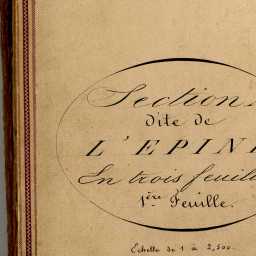 Section
dite de
L'EPIN
En trois feuil
1ère Feuille.
Echelle de 1 à 2,500.